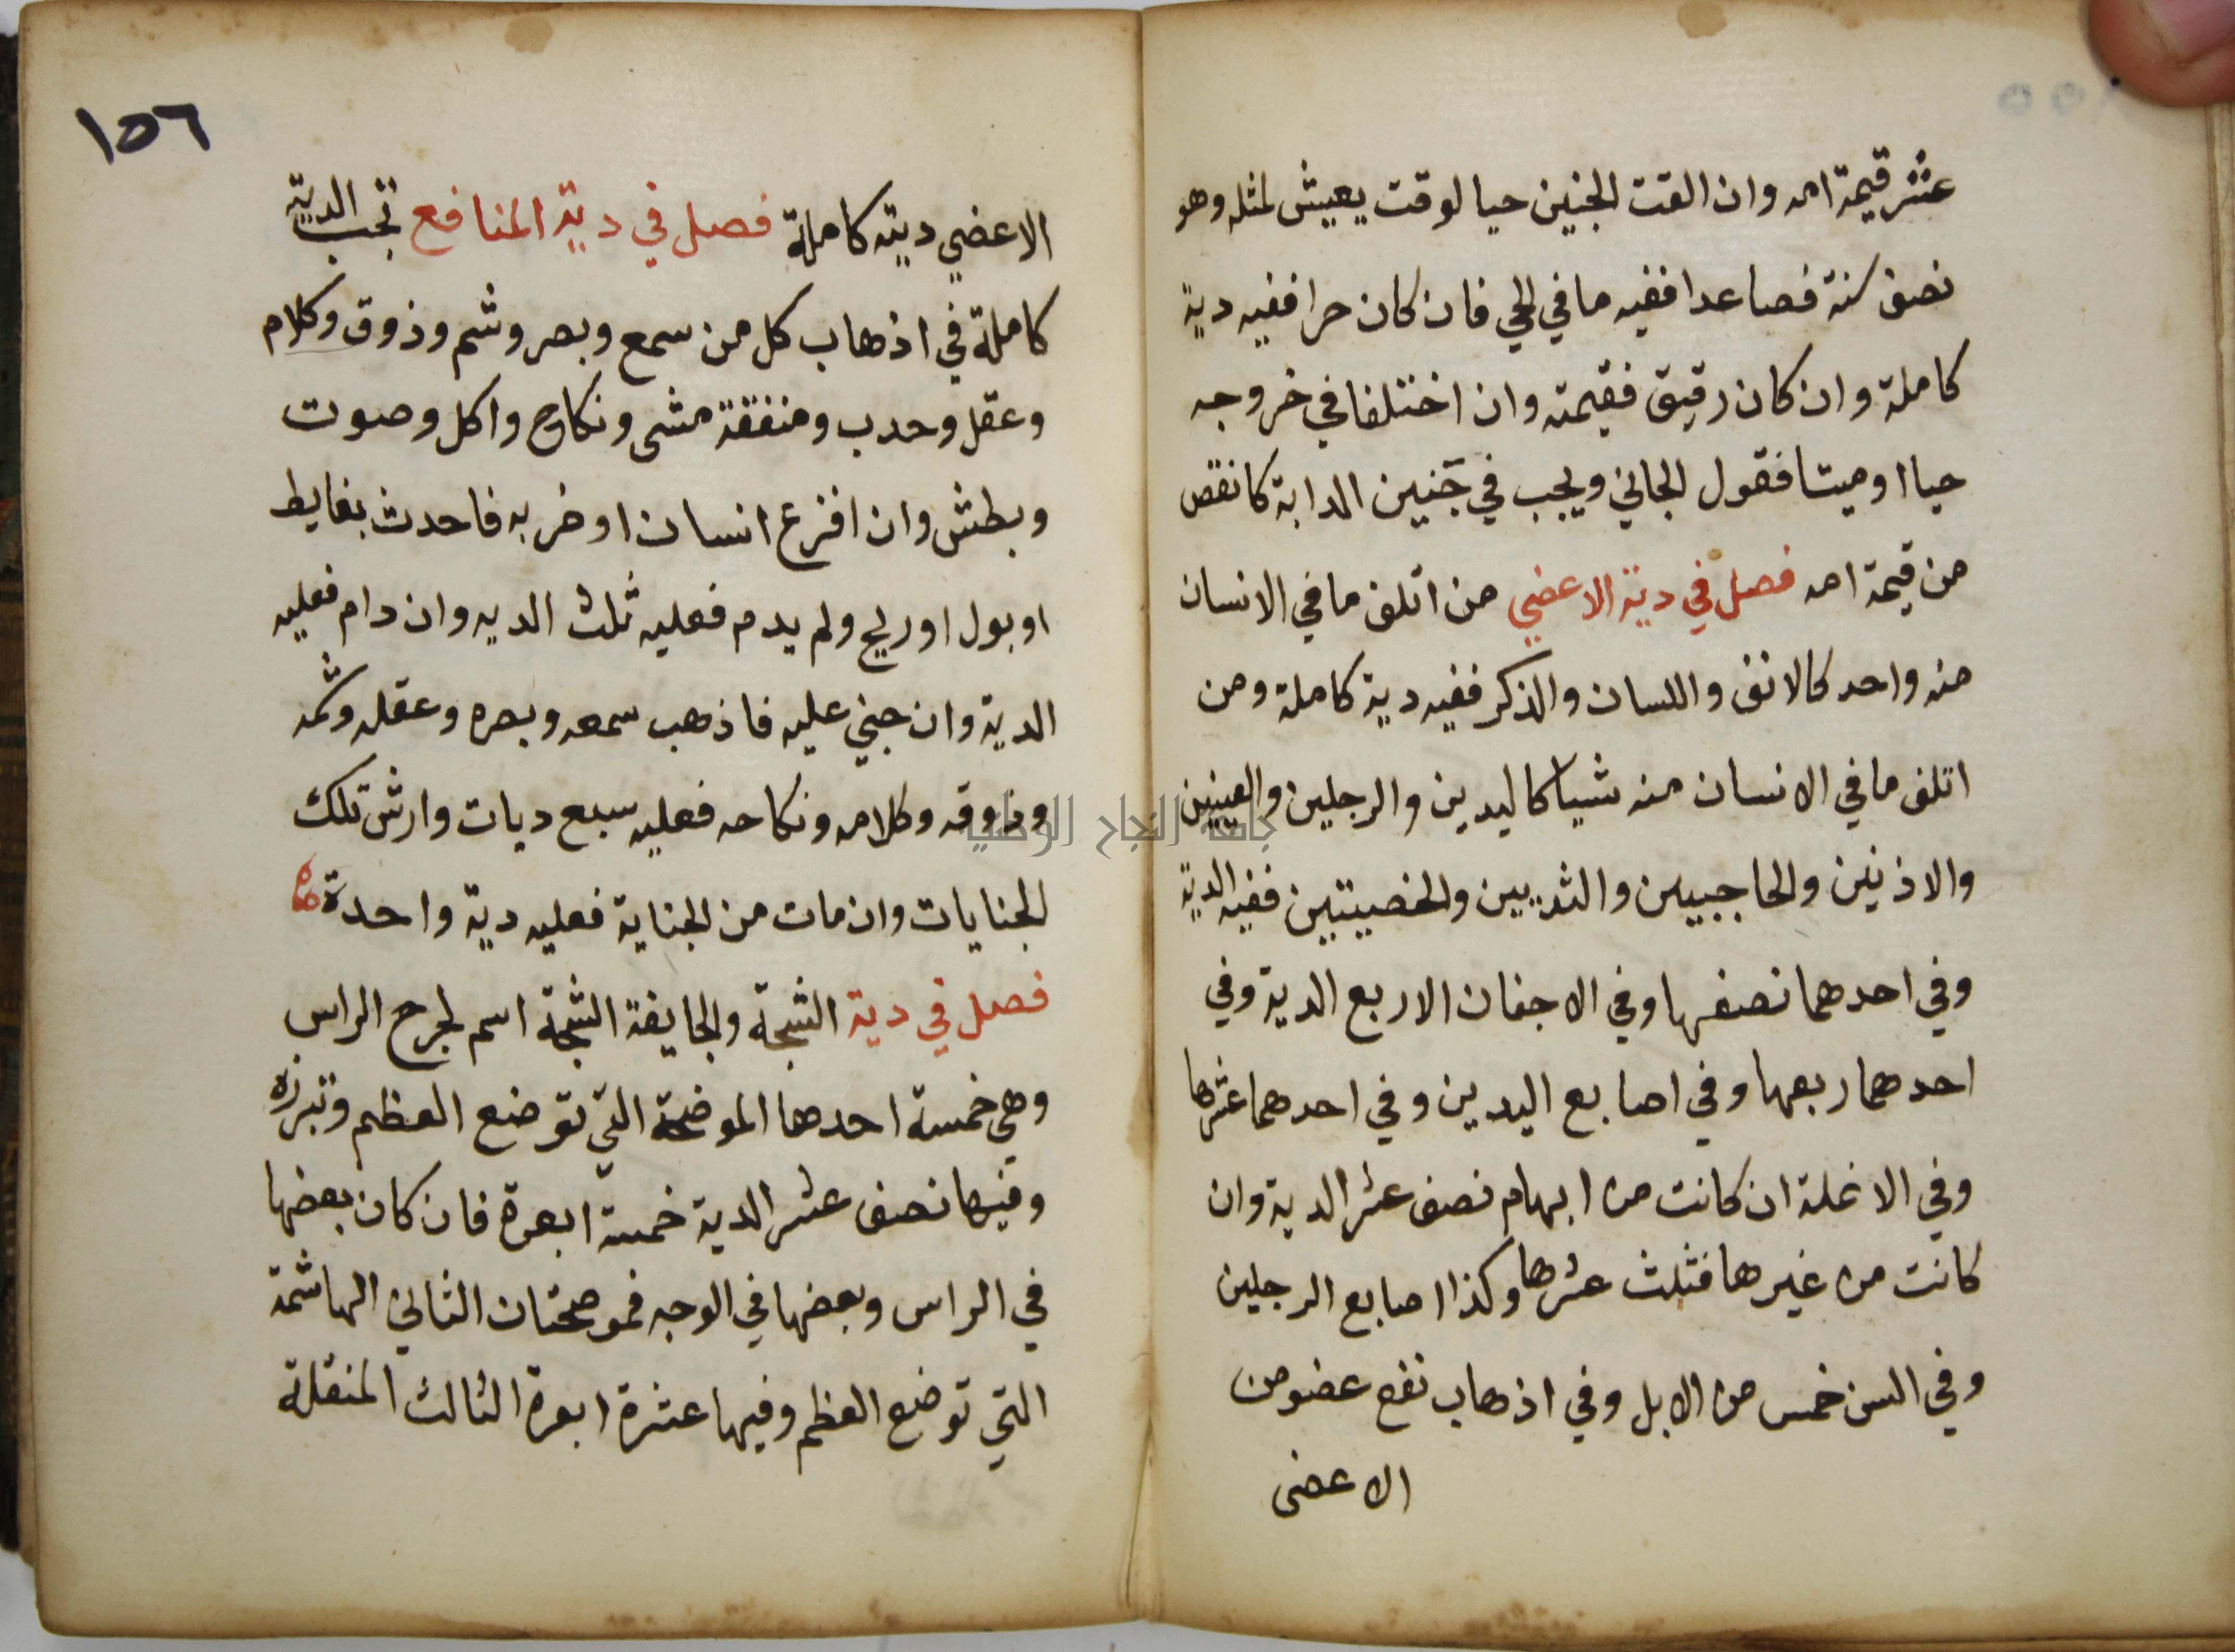 عشر قيمة امه وان القت الجنين حيا لوقت يعيش لمثله وهو
نصف سنة فصاعدا ففيه ما في الحي فان كان حرا ففيه دية
كاملة وان كان رقيق فقيمته وان اختلفا في خروجه
حيا او ميتا فقول الجاني ويجب في جنين الدابة كا نقص
من قيمة امه فصل في دية الاعضي من اتلف ما في الانسان
منه واحد كالانف واللسان والذكر ففيه دية كاملة ومن
اتلف ما في الانسان منه شيا كاليدين والرجلين والعينين
والاذنين والحاجبين والثديين والخصيتين ففيه الدية
وفي احدهما نصفها وفي الاجفان الاربع الدية وفي
احدهما ربعها وفي اصابع اليدين وفي احدهما عشرها
وفي الانملة ان كانت من ابهام نصف عشر الدية وان
كانت من غيرها فثلث عشرها وكذا اصابع الرجلين
وفي السن خمس من الابل وفي اذهاب نفع عضو من
الاعضى
١٥٦
الاعضي دية كاملة فصل في دية المنافع تجب الدية
كاملة في اذهاب كل من سمع وبصر وشم وذوق وكلام
وعقل وحدب ومنفقة مشى ونكاح واكل وصوت
وبطش وان افزع انسان او ضربه فاحدث بغايط
او بول او ريح ولم يدم فعليه ثلث الديه وان دام فعليه
الدية وان جني عليه فاذهب سمعه وبصره وعقله وشمه
وذوقه وكلامه ونكاحه فعليه سبع ديات وارش تلك
الجنايات وان مات من الجناية فعليه دية واحدة
فصل في دية الشجة والجايفة الشجة اسم لجرح الراس
وهي خمسة احدها الموضحة التي توضع العظم وتبرزه
وفيها نصف عشر الدية خمسة ابعرة فان كان بعضها
في الراس وبعضها في الوجه فموضحتان الثاني الهاشمة
التي توضع العظم وفيها عشرة ابعرة الثالث المنقلة
جامعة النجاح الوطنية